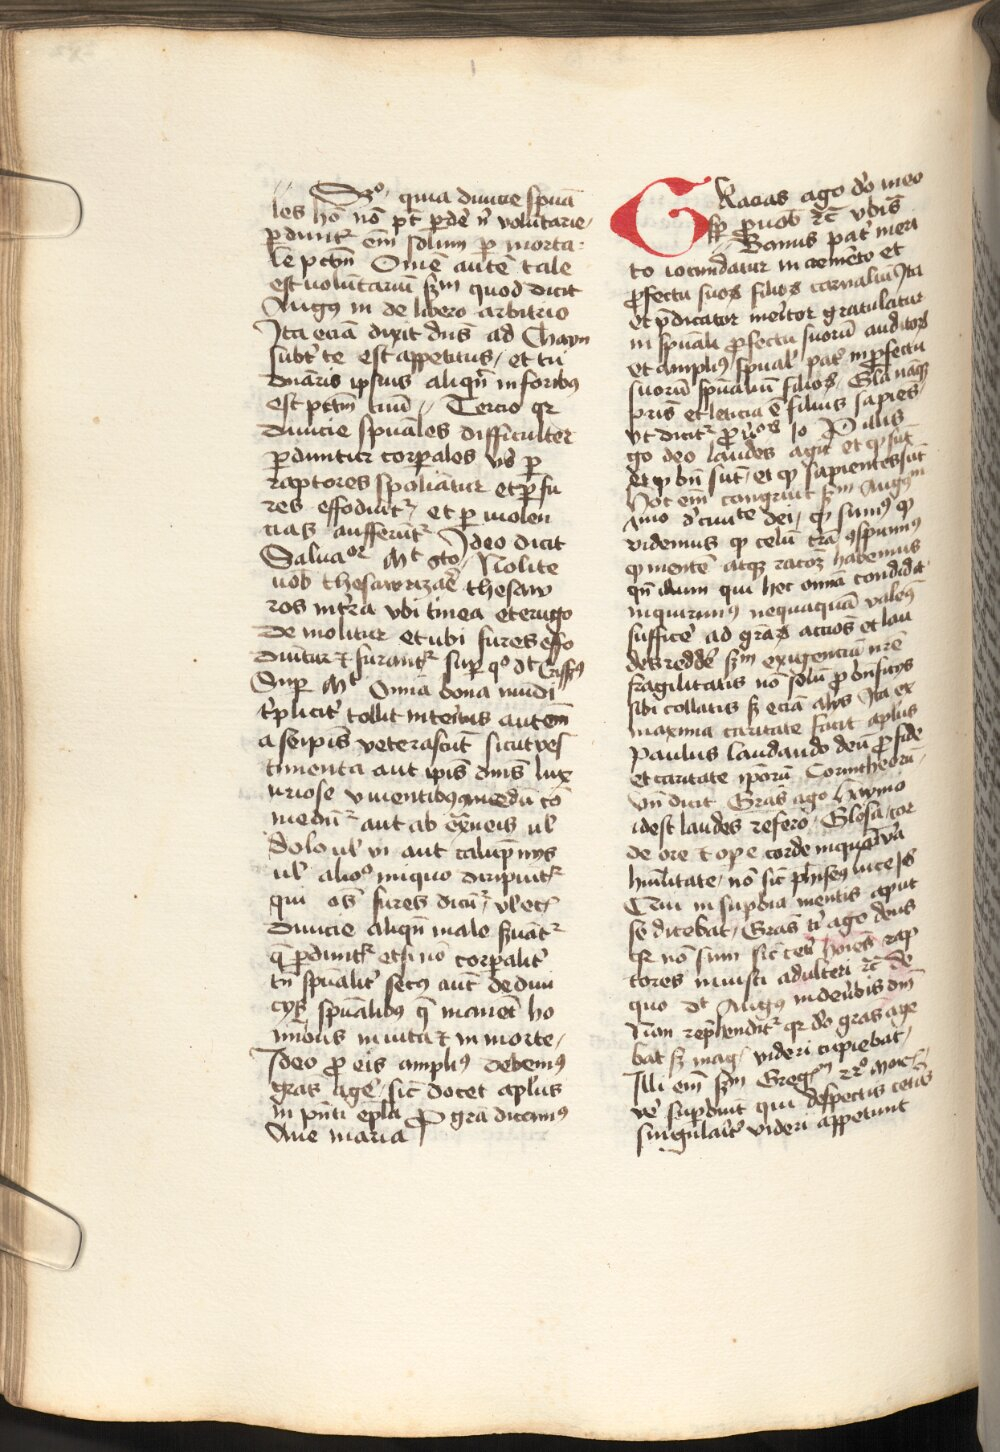 Sz͛o quia diuicie spūa
les hō nō pt̄ pde͛ n͛ volūtarie
pdunt͛ em̄ solum p morta
le pctm̄ Omē autē tale
est voluntariū sz͛m quod dicit
Augus in de libero arbitrio
Ita eciā dixit dn̄s ad Chayn
subt͛ te est appetitus et tu
dn̄aris ipsius aliqn̄ in foribus
est pctm̄ tuū Tercio qr
diuicie spūales difficulter
pduntur corpales vo͛ p
raptores spoliātur et p fu
res effodiūt͛ et p violen
cias aufferūt͛ Ideo dicit
Saluaor Mt 6to Nolite
uob thesawrizaē thesaw
ros in tr̄a vbi tinea et erugo
demolitur et ubi fures effo
diūtur ⁊ furant͛ sup qo dt Criss9
Sup Mt Omia bona mūdi
tplicit͛ tollit interitus autem
a seipis veterascūt sicut ves
timenta aut ip̄is dn̄is lux
uriose viuentibus
aut ab ext͛neis ul͛
dolo ul͛ vi aut calūpnijs
ul͛ alio9 iniquo diripiūt͛
qui os̄ fures dicūt͛ vl͛ etc
diuicie aliqn̄ male s͛uāt͛
q̄ pdunt͛ etsi nō corpalit͛
tn̄ spūalit͛ secus aut̄ de diui
cijs spūalibus q̄ manēt ho
minibus in uita ⁊ in morte
Ideo p eis amplius debemus
gras age͛ sic̄ docet apl̄us
in pn̄ti epla P gra dicamus
Aue maria
Gracias ago do͛ meo
sp͛ p uob ⁊c̄ vbis̄
Bonus pat͛ meri
to iocundatur in aemēto et
pfectu suoꝝ filioꝝ carnaliū Ita
et p̄dicator merito͛ gratulatur
in spūali pfectu suorū auditoꝝ
et amplius spūal͛ pat͛ in pfectu
suorū spūaliū filioꝝ Gl͛a nāqꝫ
pris̄ et leticia ē filius sapiēs
vt dicit͛ pu͛or 10 P illis
go deo laudes agit et qꝫ sūt
et qꝫ bn̄ sūt et qꝫ sapientes sūt
Hoc em̄ congruit sz͛m Augum
xmo d͛ ciuite dei qꝫ sumus qꝫ
videmus qꝫ celū tr̄a ꝯspicimus
qꝫ mentē atqꝫ racoꝫ habemus
qn̄ eum qui hec omia condidit
inquirimus nequaquā valeus
suffice͛ ad gras̄ accioē et lau
des redde͛ sz͛m exigenciā nr̄e
fragilitatis nō solū p bn̄ficijs
sibi collatis sꝫ eciā alijs Ita ex
maxima caritate facit apl̄us
Paulus laudando deū p fide
et caritate ipōrū Corintheorū
Vn̄ dicit Gras ago
idest laudes refero Glosa cor
de ore ⁊ ope corde inquā vā
hūilitate nō sic̄ ph͛iseus luce 18
Cui in supbia mentis aput
se dicebat Gras̄ t͛ ago deus
qr nō sum sic̄ cet͛i hoīes rap
tores iniusti adulteri ⁊c̄ de
quo dt Augus in de ūbis dn̄i
Non rep̄hendit͛ qr do͛ gras age
bat sꝫ mag͛ videri cupiebat
Illi em̄ sz͛m Gregm 22o mor
ve͛ supbiūt qui despectis cet͛is
singularit͛ videri appetunt